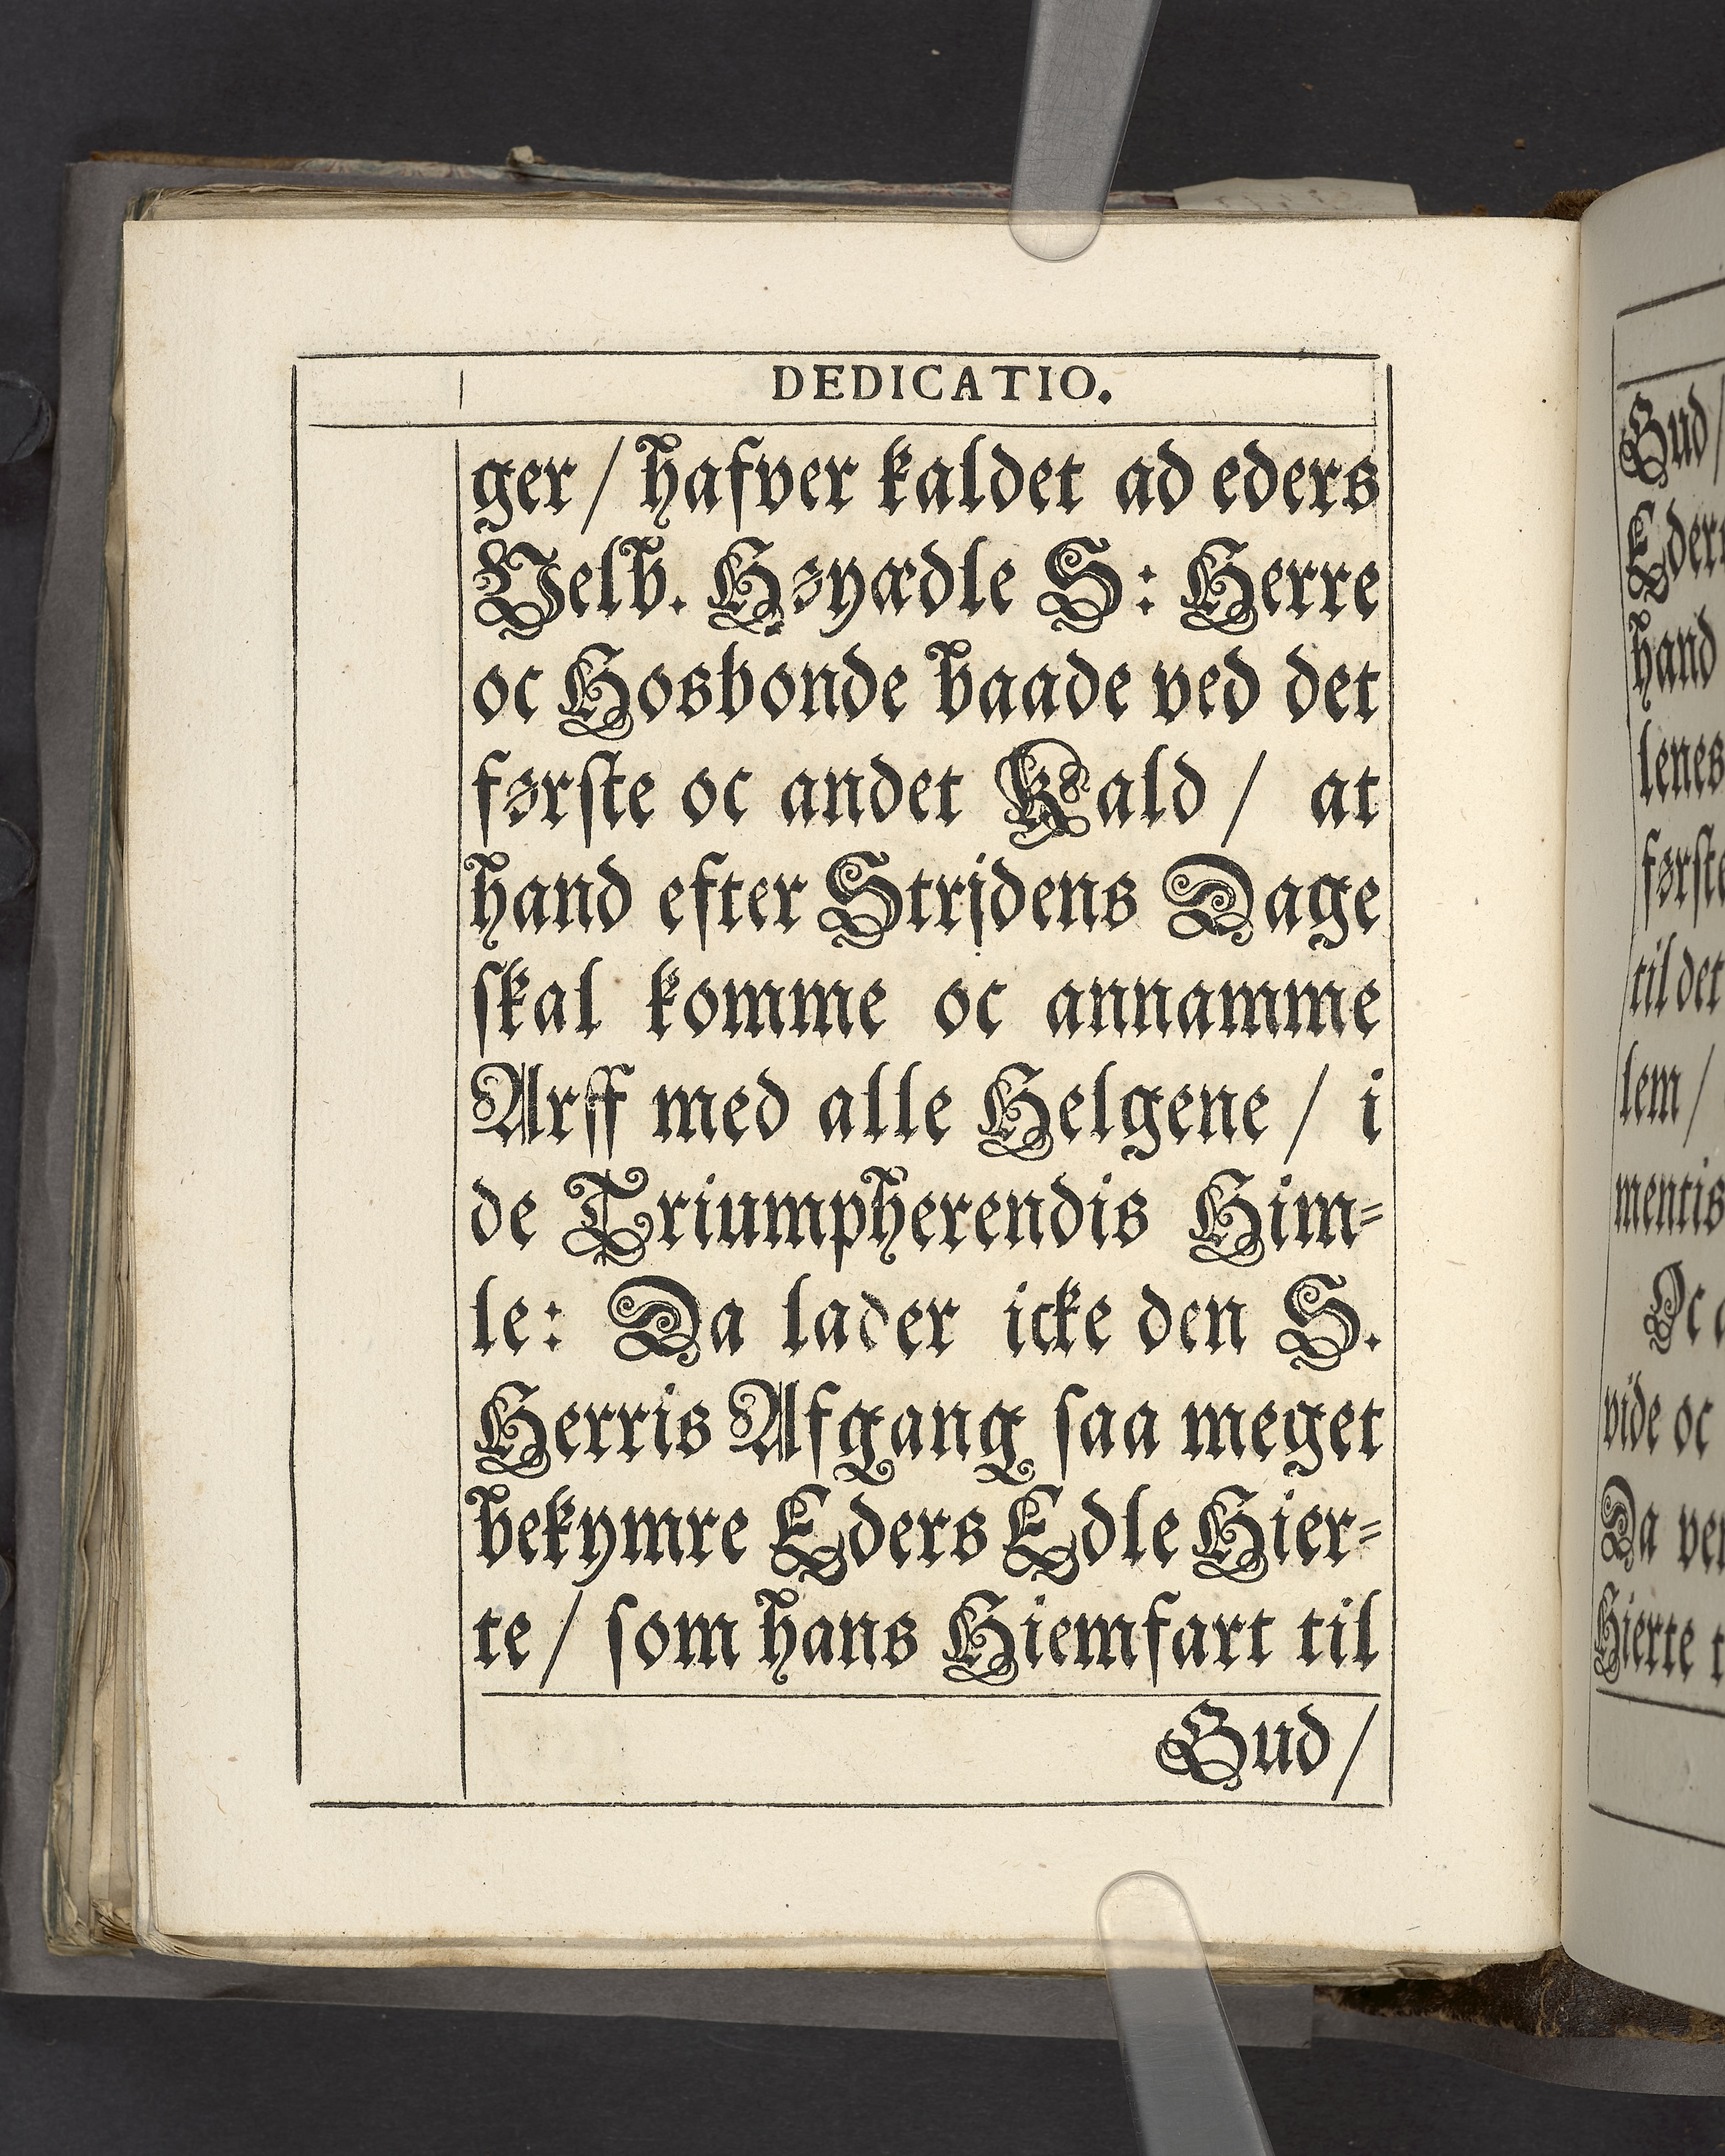 DEDICATIO.
ger / hafver kaldet ad eders
Velb. Høyædle S: Herre
oc Hosbonde baade ved det
første oc andet Kald / at
hand efter Strjdens Dage
skal komme oc annamme
Arff med alle Helgene / i
de Triumpherendis Him⸗
le: Da lader icke den S.
Herris Afgang saa meget
bekymre Eders Edle Hier⸗
te / som hans Hiemfart til
Gud /
Gud /
hand
lenes
første
til det
lem /
mentis
Oc
vide oc
Da
Hierte